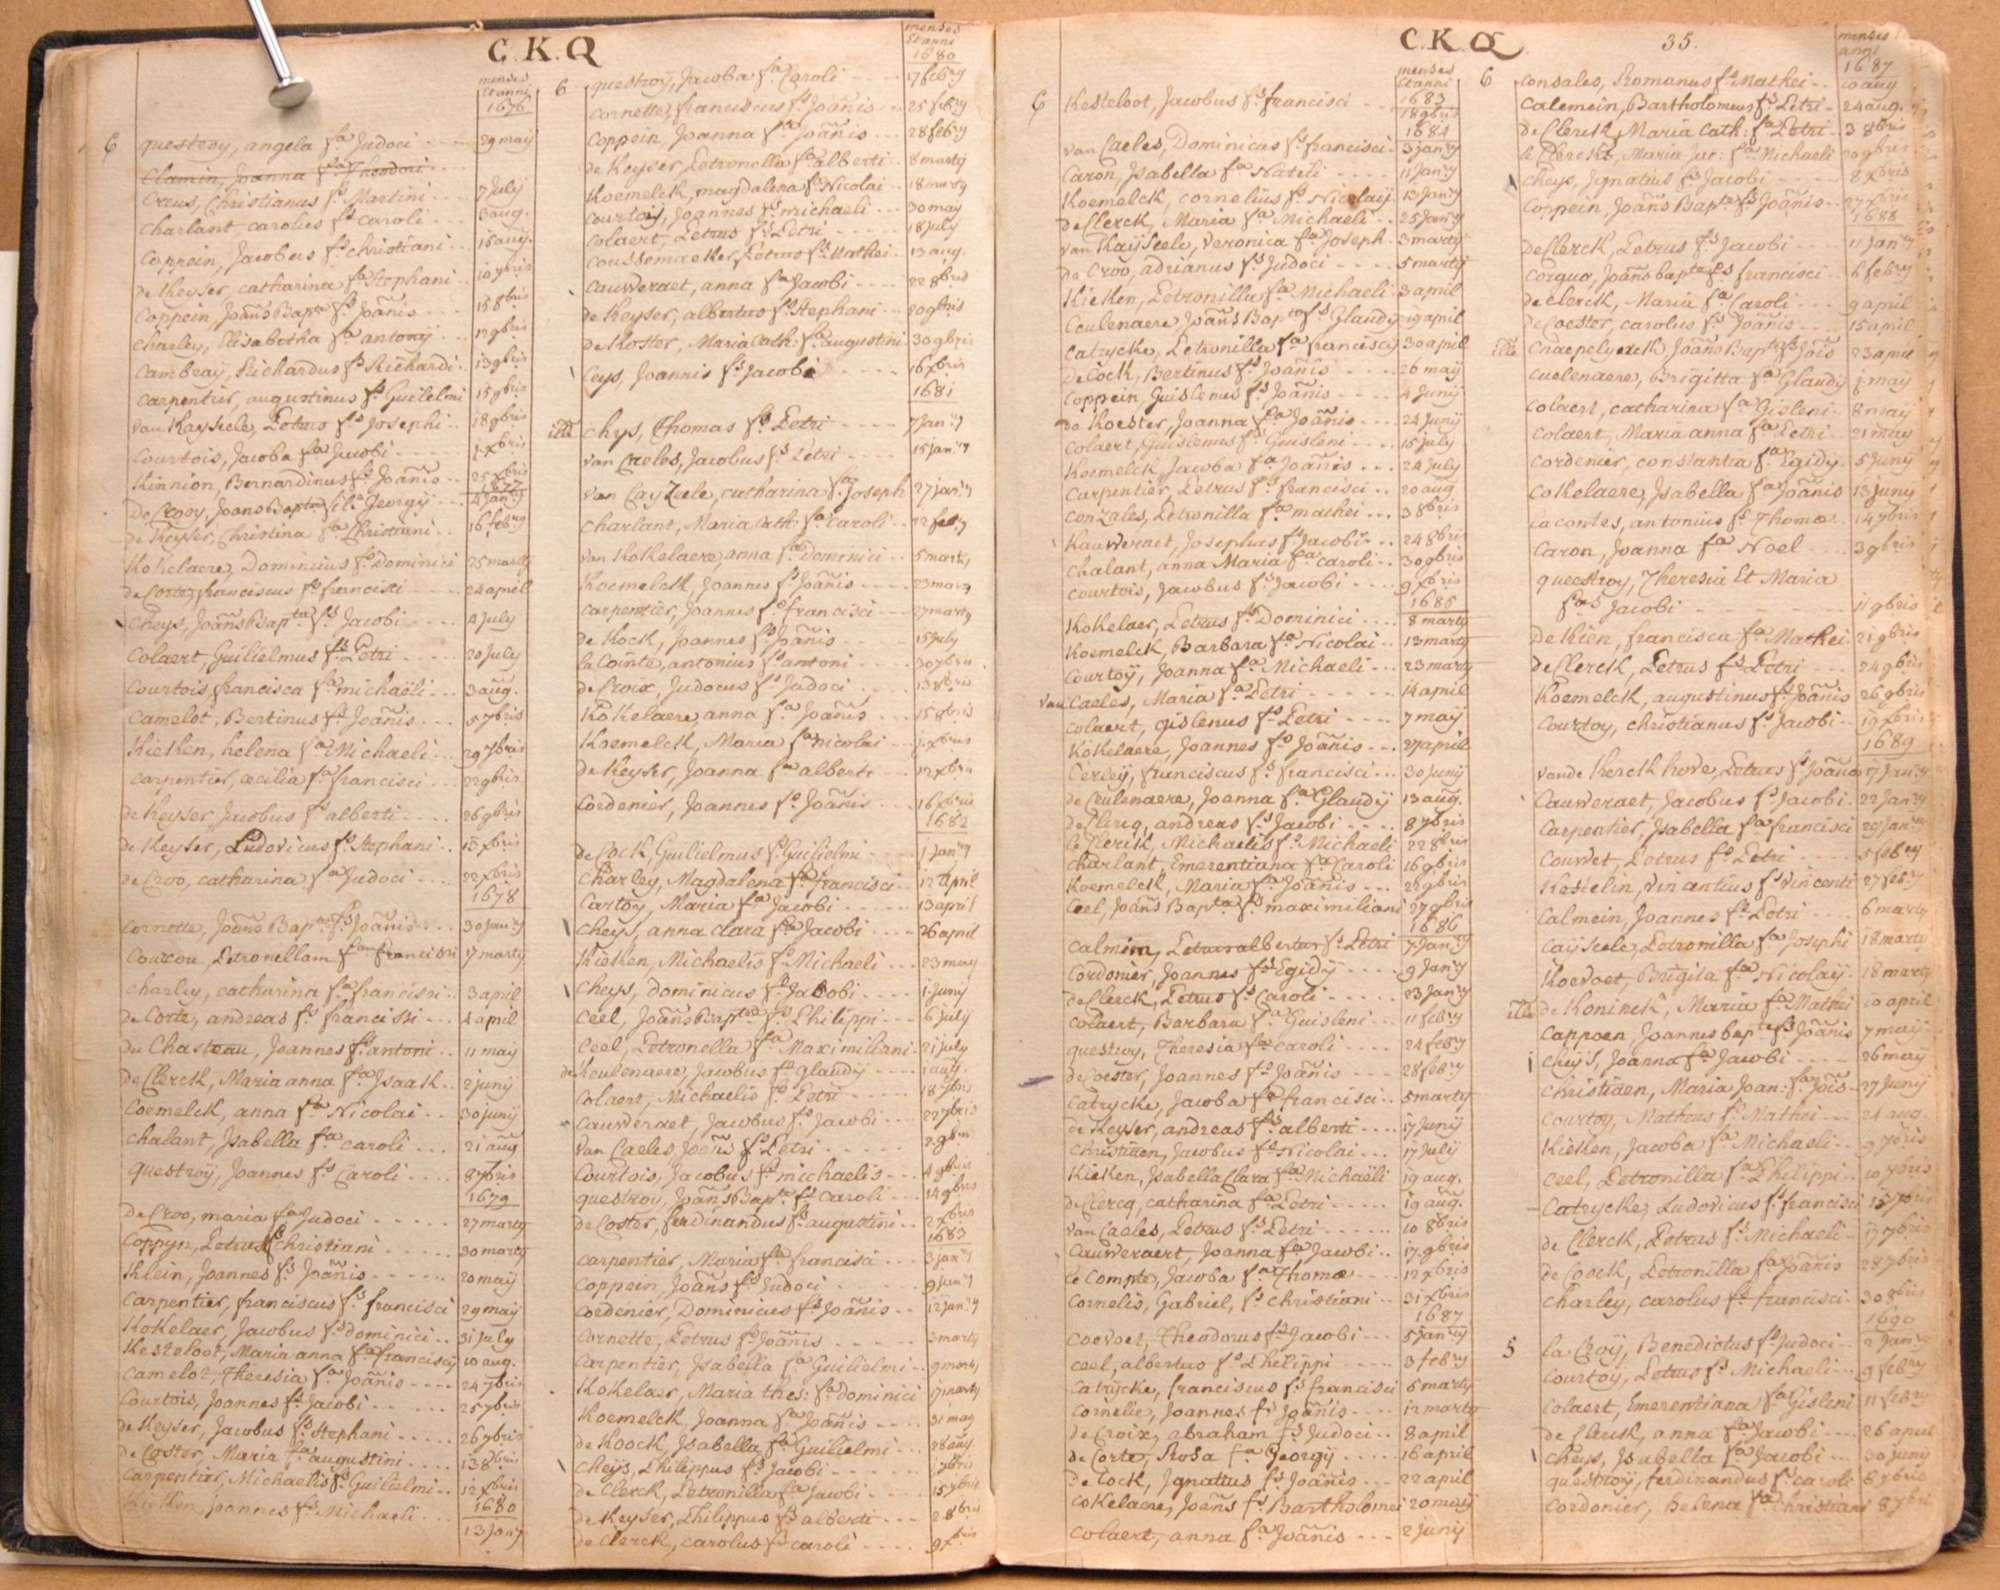 C. K. Q
menses
et anni
1676
6 questroy, angela fa Judoci - - - 29 maij
Clamin, Joanna fa Theodori
Creus, Christianus fs Martini - - - 7 July
Charlant carolus fs caroli - - - 3 aug.
Coppein, Jacobus fs christiani - - 15 aug.
de Keyser, catharina fa Stephani - - 10 7bris
Coppein Joañs Bapta fs Joañis - - - 15 8bris
Charley, Elisabetha fa antonij - - 12 9bris
Cambray, Richardus fs Richardi - - 13 9bris
Carpentier, augustinus fs Guilelmi 15 9bris
van Kayseele, Petrus fs Josephi - - 18 9bris
Courtois, Jacoba fa Jacobi - - - 1 xbris
Kinnion, Bernardinus fs Joañis - - 25 xbris
1677
De Crooy, Joans Bapta fili. Georgij - - 4 Janry
de Keyser, Christina fa Christiani - - 16 febry
Kokelaere, Dominicus fs Dominici 25 martij
de Corte, franciscus fs francisci - - 24 april
Cheys, Joañs Bapta fs Jacobi - - - 4 July
Colaert, Guilielmus fs Petri - - - 20 July
Courtois, francisca fa michaëli - - 3 aug.
Camelot, Bertinus fs Joañis - - - 5 7bris
Kieken, helena fa Michaeli - - - 29 7bris
Carpentier, œcilia fa francisci - - 22 9bris
de Keyser, Jacobus fs alberti - - - 26 9bris
de Keyser, Ludovicus fs Stephani - - 15 xbris
de Croo, catharina fa Judoci - - - 22 xbris
1678
Cornette, Joañs Bapta fs Joañis - - 30 Janry
Coucou, Petronellam fa francisci 17 marty
Charley, catharina fa francisci - - 3 april
de Corte, andreas fs francisci - - - 4 april
du Chasteau, Joannes fs antoni - - 11 may
de Clerck, Maria anna fa Isaak - - 2 junij
Coemelck, anna fa Nicolai - - - 20 junij
Chalant, Isabella fa caroli - - - 21 aug
questroij, Joannes fs Caroli - - - - 8 7bris
1679
de Croo, maria fa Judoci - - - - - 27 marty
Coppyn, Petrus fs christiani - - - - - 30 marty
Klein, Joannes fs Joañis - - - - - - 20 maij
Carpentier, franciscus fs francisci 29 maij
Kokelaer, Jacobus fs dominici - - 31 July
Kesteloot, Maria anna fa francisci 10 aug.
Camelot, Theresia fa Joañis - - - - 24 7bris
Courtois, Joannes fs Jacobi - - - - 25 7bris
de Keyser, Jacobus fs Stephani - - - - 26 7bris
de Coster, Maria fa augustini - - - 13 8bris
Carpentier, Michaelis fs Guilielmi - - 12 xbris
1680
Kieken, Joannes fs Michaeli - - - 13 Jany
menses
et anni
1680
6 questroy, Jacoba fa Caroli - - - - 17 febry
Cornette, franciscus fs Joañis - - - 25 febry
Coppein, Joanna fa Joañis - - - 28 febry
de Keyser, Petronella fa alberti - - 8 martij
Koemelck, magdalena fa Nicolai - - 18 marty
Courtoij, Joannes fs michaeli - - - 30 may
Colaert, Petrus fs Petri - - - - 18 july
Coussemaeker, Petrus fs Mathei - - 13 aug.
Cauweraet, anna fa Jacobi - - - - 22 8bris
de Keyser, albertus fs Stephani - - - 20 9bris
de Koster, Maria Cath: fa augustini - 30 9bris
Ceys, Joannis fs Jacobi - - - - 16 xbris
1681
chys, Thomas fs Petri - - - - 7 Janry
van Caeles, Jacobus fs Petri - - - - 15 Janry
van Cayzeele, catharina fa Joseph 27 janry
Charlant, Maria Cath: fa caroli - - 22 febry
van Kokelaere, anna fa Dominici - - 5 marty
Koemelck, Joannes fs Joañis - - - - 23 marty
Carpentier, Joannes fs francisci - - - 27 marty
de Kock, Joannes fs Joañis - - - 15 July
la Cointe, antonius fs antoni - - - - 30 7bris
de Croix, Judocus fs Judoci - - - - 13 8bris
Kokelaere, anna fa Joañis - - - 15 8bris
Koemelck, Maria fa nicolai - - - 1 xbris
de Keyser, Joanna fa alberti - - - 12 xbris
Cordenier, Joannes fs Joañis - - - 16 xbris
1682
de Cock, Guilielmus fs Guilielmi - - - 1 Janry
Charley, Magdalena fa francisci - - 12 april
Cartoy, Maria fa Jacobi - - - - 13 april
Cheys, anna clara fa Jacobi - - - - 26 april
Kieken, Michaelis fs Michaeli - - - 23 may
Cheys, dominicus fs Jacobi - - - - 1 Junij
Ceel, Joañs Bapta fs Philippi - - - 6 July
Ceel, Petronella fa Maximiliani - 21 july
de Keulenaere, Jacobus fs glaudij - - - 1 aug.
Colaert, Michaelis fs Petri - - - - 18 7bris
Cauweraet, Jacobus fs Jacobi - - - 22 7bris
Van Caeles, Joañs fs Petri - - - - -
Courtois, Jacobus fs michaelis - - - 4 9bris
questroy, Joañs Bapta fs caroli - - - 14 9bris
de Coster, ferdinandus fs augustini - - 2 xbris
1683
Carpentier, Maria fa francisci - - - 3 janry
Coppein, Joañs fs Judoci - - - - - 9 janry
Cordenier, Dominicus fs Joañis - - - 12 janry
Cornette, Petrus fs Joañis - - - - 3 marty
Carpentier, Isabella fa Guilielmi - - 9 marty
Kokelaer, Maria Thes: fa dominici 17 marty
Koemelck, Joanna fa Joañis - - - - 31 may
de Koock, Isabella fa Guilielmi - - 28 aug.
Cheys, Philippus fs Jacobi - - - - -
de Clerck, Petronilla fa Jacobi - - - 15 7bris
de Keyser, Philippus fs alberti - - - 2 8bris
de Clerck, carolus fs caroli - - - - -
C. K. Q
35.
menses
et anni
1683
6 Kesteloot, Jacobus fs francisci - - 18 9bris
1684
van Caeles, Dominicus fs francisci - 3 janry
Caron, Isabella fa Nateli - - - - 11 Janry
Koemelck, cornelius fs Nicolaij 13 Janry
de Clerck, Maria fa Michaeli - - - 25 Janry
van Kaysele, veronica fa Joseph - 3 marty
de Croo, adrianus fs Judoci - - - - 5 marty
Kieken, Petronilla fa Michaeli 3 april
Ceulenaere Joañs Bapta fs Glaudij 19 april
Catrycke, Petronilla fa francisci 30 april
de Cock, Bertinus fs Joañis - - - - 26 maij
Coppein Guislenus fs Joañis - - - - 4 Junij
de Koester, Joanna fa Joañis - - - 24 Junij
Colaert, Guislenus fs Guisleni - - - 15 july
Koemelck, Jacoba fa Joañis - - - 24 July
Carpentier, Petrus fs francisci - - 20 aug.
Conzales, Petronilla fa mathei - - - 3 8bris
Kauweraet, Josephus fs Jacobi - - - 24 8bris
Chalant, anna Maria fa caroli - - 30 9bris
Courtois, Jacobus fs Jacobi - - - - 9 xbris
1685
Kokelaer, Petrus fs Dominici - - - 8 marty
Koemelck, Barbara fa Nicolai - - 13 marty
Courtoij, Joanna fa Michaeli - - - 23 marty
Van Caeles, Maria fa Petri - - - - - - 14 april
Colaert, gislenus fs Petri - - - - - 7 maij
Kokelaere, Joannes fs Joañis - - - 27 april
Cerleij, franciscus fs francisci - - - 30 junij
de Ceulenaere, Joanna fa Glaudij 13 aug.
de Clercq, andreas fs Jacobi - - - - 8 7bris
le Clerck, Michaelis fs Michaeli 22 8bris
Charlant, Emerentiana fa Caroli 16 9bris
Koemelck, Maria fa Joañis - - - 22 9bris
Ceel, Joañs Bapta fs maximiliani 27 9bris
1686
Calmein, Petrus albertus fs Petri 7 Janry
Cordonier, Joannes fs Egidij - - - 9 Janry
de Clerck, Petrus fs Caroli - - - - - 23 Janry
Colaert, Barbara fa Guisleni - - - 11 febry
questroy, Theresia fa caroli - - - - 24 febry
de Coester, Joannes fs Joañis - - - - 28 febry
Catrycke, Jacoba fa francisci - - 5 marty
de Keyser, andreas fs alberti - - - - 17 Junij
Christiaen, Jacobus fs Nicolai - - - 17 July
Kieken, Isabella Clara fa Michaëli 19 aug.
de Clercq, catharina fa Petri - - - - 19 aug.
van Caeles, Petrus fs Petri - - - - - 10 8bris
Cauweraert, Joanna fa Jacobi - - 17 9bris
le Compte, Jacoba fa Thomæ - - - 12 xbris
Cornelis, Gabriel, fs christiani - - - 31 xbris
1687
Coevoet, Theodorus fs Jacobi - - - 5 janry
Ceel, albertus fs Philippi - - - - - 3 febry
Catrycke, franciscus fs francisci 6 marty
Cornelie, Joannes fs Joañis - - - - 12 marty
de Croix, abraham fs Judoci - - 8 april
de Corte, Rosa fa Georgij - - - 16 april
de Cock, Ignatius fs Joañis - - - - 22 april
Cokelaere, Joañs fs Bartholomei 20 maij
Colaert, anna fa Joañis - - - 2 junij
menses
anni
1687
6 Consales, Romanus fs Mathei - - 10 aug
Calemein, Bartholomeus fs Petri - 24 aug.
de Clerck, Maria Cath: fa Petri - - 3 8bris
le Clercke, Maria Jac: fa Michaeli 20 9bris
Cheys, Ignatius fs Jacobi - - - - - 8 xbris
Coppein, Joañs Bapta fs Joañis - - - 27 xbris
1688
de Clerck, Petrus fs Jacobi - - - 11 Janry
Corqua, Joañs bapta fs francisci - - 6 febry
de Clerck, Maria fa Caroli - - - - 9 april
de Coester, carolus fs Joañis - - - 15 april
Cnaepelynck Joañs Bapta fs Joañis 23 april
Cuelenaere, Brigitta fa Glaudij 1 maij
Colaert, catharina fa Gisleni - - 8 maij
Colaert, Maria anna fa Petri - - - 21 maij
Cordenier, constantia fa Egidij - - 5 Junij
Cokelaere, Isabella fa Joañis 13 junij
la contes, antonius fs Thomæ - - 14 7bris
Caron, Joanna fa Noel - - - - 3 9bris
queestroy, Theresia Et Maria
fae Jacobi - - - - - - - 11 9bris
de Kien, francisca fa Mathei - 21 9bris
de Clerck, Petrus fs Petri - - - - 24 9bris
Koemelck, augustinus fs Joañis 26 9bris
Courtoy, christianus fs Jacobi - - 19 xbris
1689
vande Kerckhove, Petrus fs Joañis 17 Janry
Cauweraet, Jacobus fs Jacobi - - 22 Janry
Carpentier, Isabella fa francisci 29 Janry
Couwet, Petrus fs Petri - - - - - 5 febry
Kestelin, vincentius fs vincenti 27 febry
Calmein, Joannes fs Petri - - - - 6 marty
Cayseele, Petronilla fa Josephi 18 marty
Koevoet, Brigita fa Nicolaij - 18 marty
de Koninck, Maria fa Mathei 10 april
Cappoen, Joannes bapta fs Joañis 7 maij
Cheys, Joanna fa Jacobi - - - - 26 maij
Christiaen, Maria Joan: fa Joïs - - 27 Junij
Courtoy, Matheus fs Mathei - - - 24 aug.
Kieken, Jacoba fa Michaeli - - 9 7bris
Ceel, Petronilla fa Philippi - - 10 7bris
Catrycke, Ludovicus fs francisci
de Clerck, Petrus fs Michaeli - 17 7bris
de Coock, Petronilla fa Joañis 28 7bris
Charley, carolus fs francisci - 30 8bris
1690
5 la Croij, Benedictus fs Judoci - - 2 Janry
Courtoy, Petrus fs Michaeli - - - 9 febry
Colaert, Emerentiana fa Gisleni 11 febry
de Clerck, anna fa Jacobi - - - - 26 april
Cheys, Isabella fa Jacobi - - - 30 junij
questroij, ferdinandus fs caroli
Cordonier, helena fa Christiani